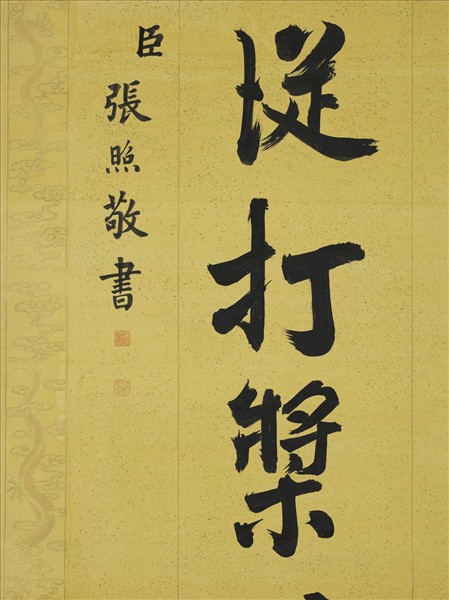 從打槳
臣張照敬書